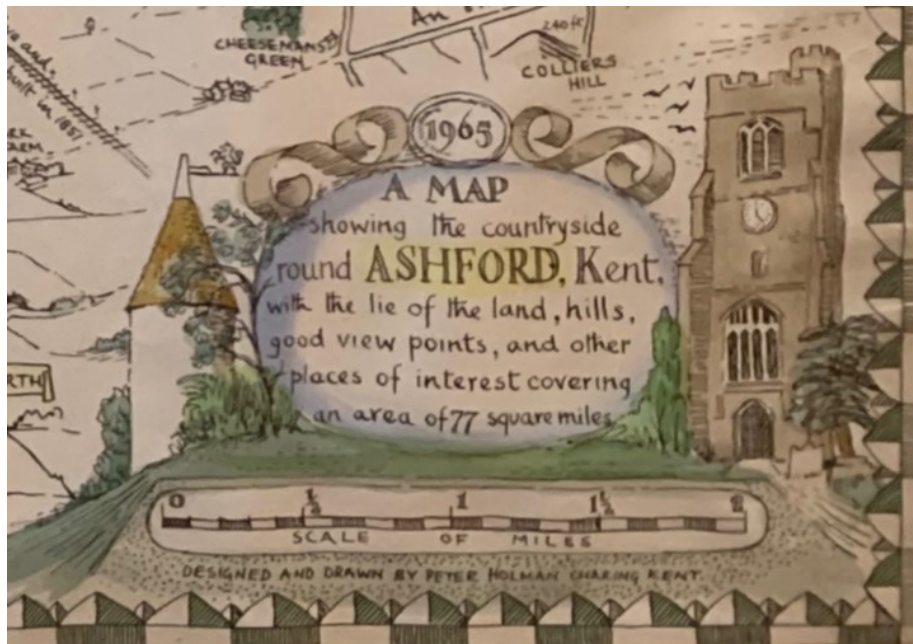 An
240 ft
CHEESEMANS
GREEN
COLLIERS
HILL
and
built in 1851
1965
A MAP
showing the countryside
round ASHFORD, Kent,
with the lie of the land, hills,
good view points, and other
places of interest covering
an area of 77 square miles
0 ½ 1 1½ 2
SCALE OF MILES
DESIGNED AND DRAWN BY PETER HOLMAN CHARING KENT.